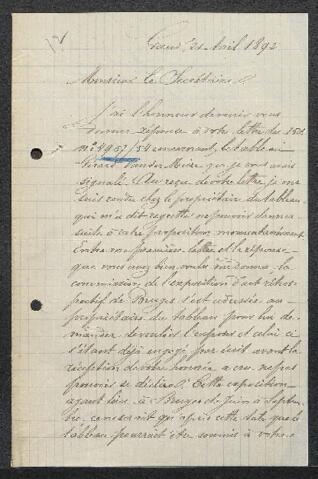 21 Avril 1892
Monsieur le Secrétaire,
J'ai l'honneur de venir vous
donner réponse à votre lettre du 15 Ct
n° 4957/54 concernant le tableau
Gérard Vander Meire que je vous avais
signalé. Au reçu de votre lettre je me
suis rendu chez le propriétaire du tableau,
qui m'a dit regretter ne pouvoir donner
suite à votre proposition momentanément.
Entre ma première lettre et la réponse
que vous avez bien voulu me donner, la
commission de l'exposition d'art rétros-
pectif de Bruges s'est adressée au
propriétaire du tableau pour lui de-
mander de vouloir l'exposer et celui ci
s'étant déjà engagé par écrit avant la
réception de votre honorée a cru ne pas
pouvoir se dédire. Cette exposition
ayant lieu à Bruges de Juin à Septem-
bre, ce serait qu'après cette date que le
tableau pourrait être soumis à votre